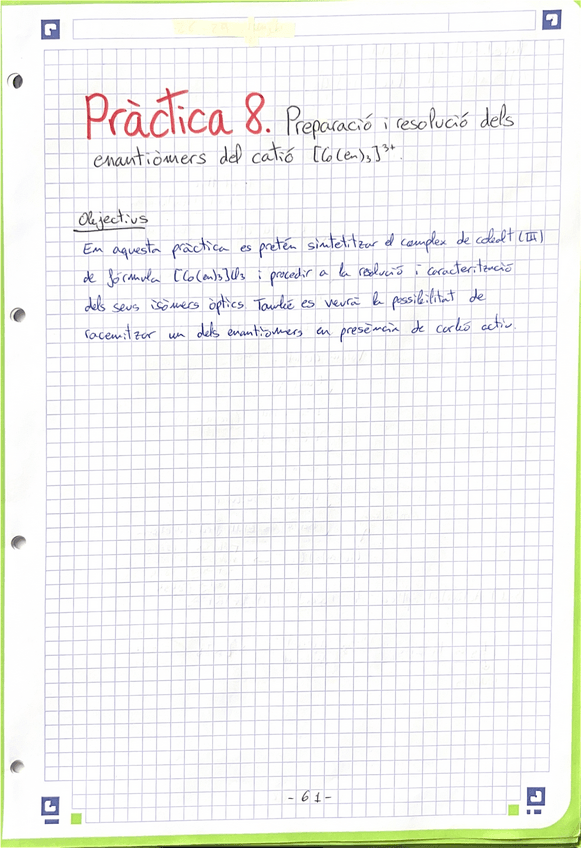 Pràctica 8. Preparació i resolució dels
enantiòmers del catió [Co(en)₃]³⁺.
Objectius
En aquesta pràctica es pretén sintetitzar el complex de cobalt (III)
de fórmula [Co(en)₃]Cl₃ i procedir a la resolució i caracterització
dels seus isòmers òptics. També es veurà la possibilitat de
racemitzar un dels enantiòmers en presència de carbó actiu.
- 61 -